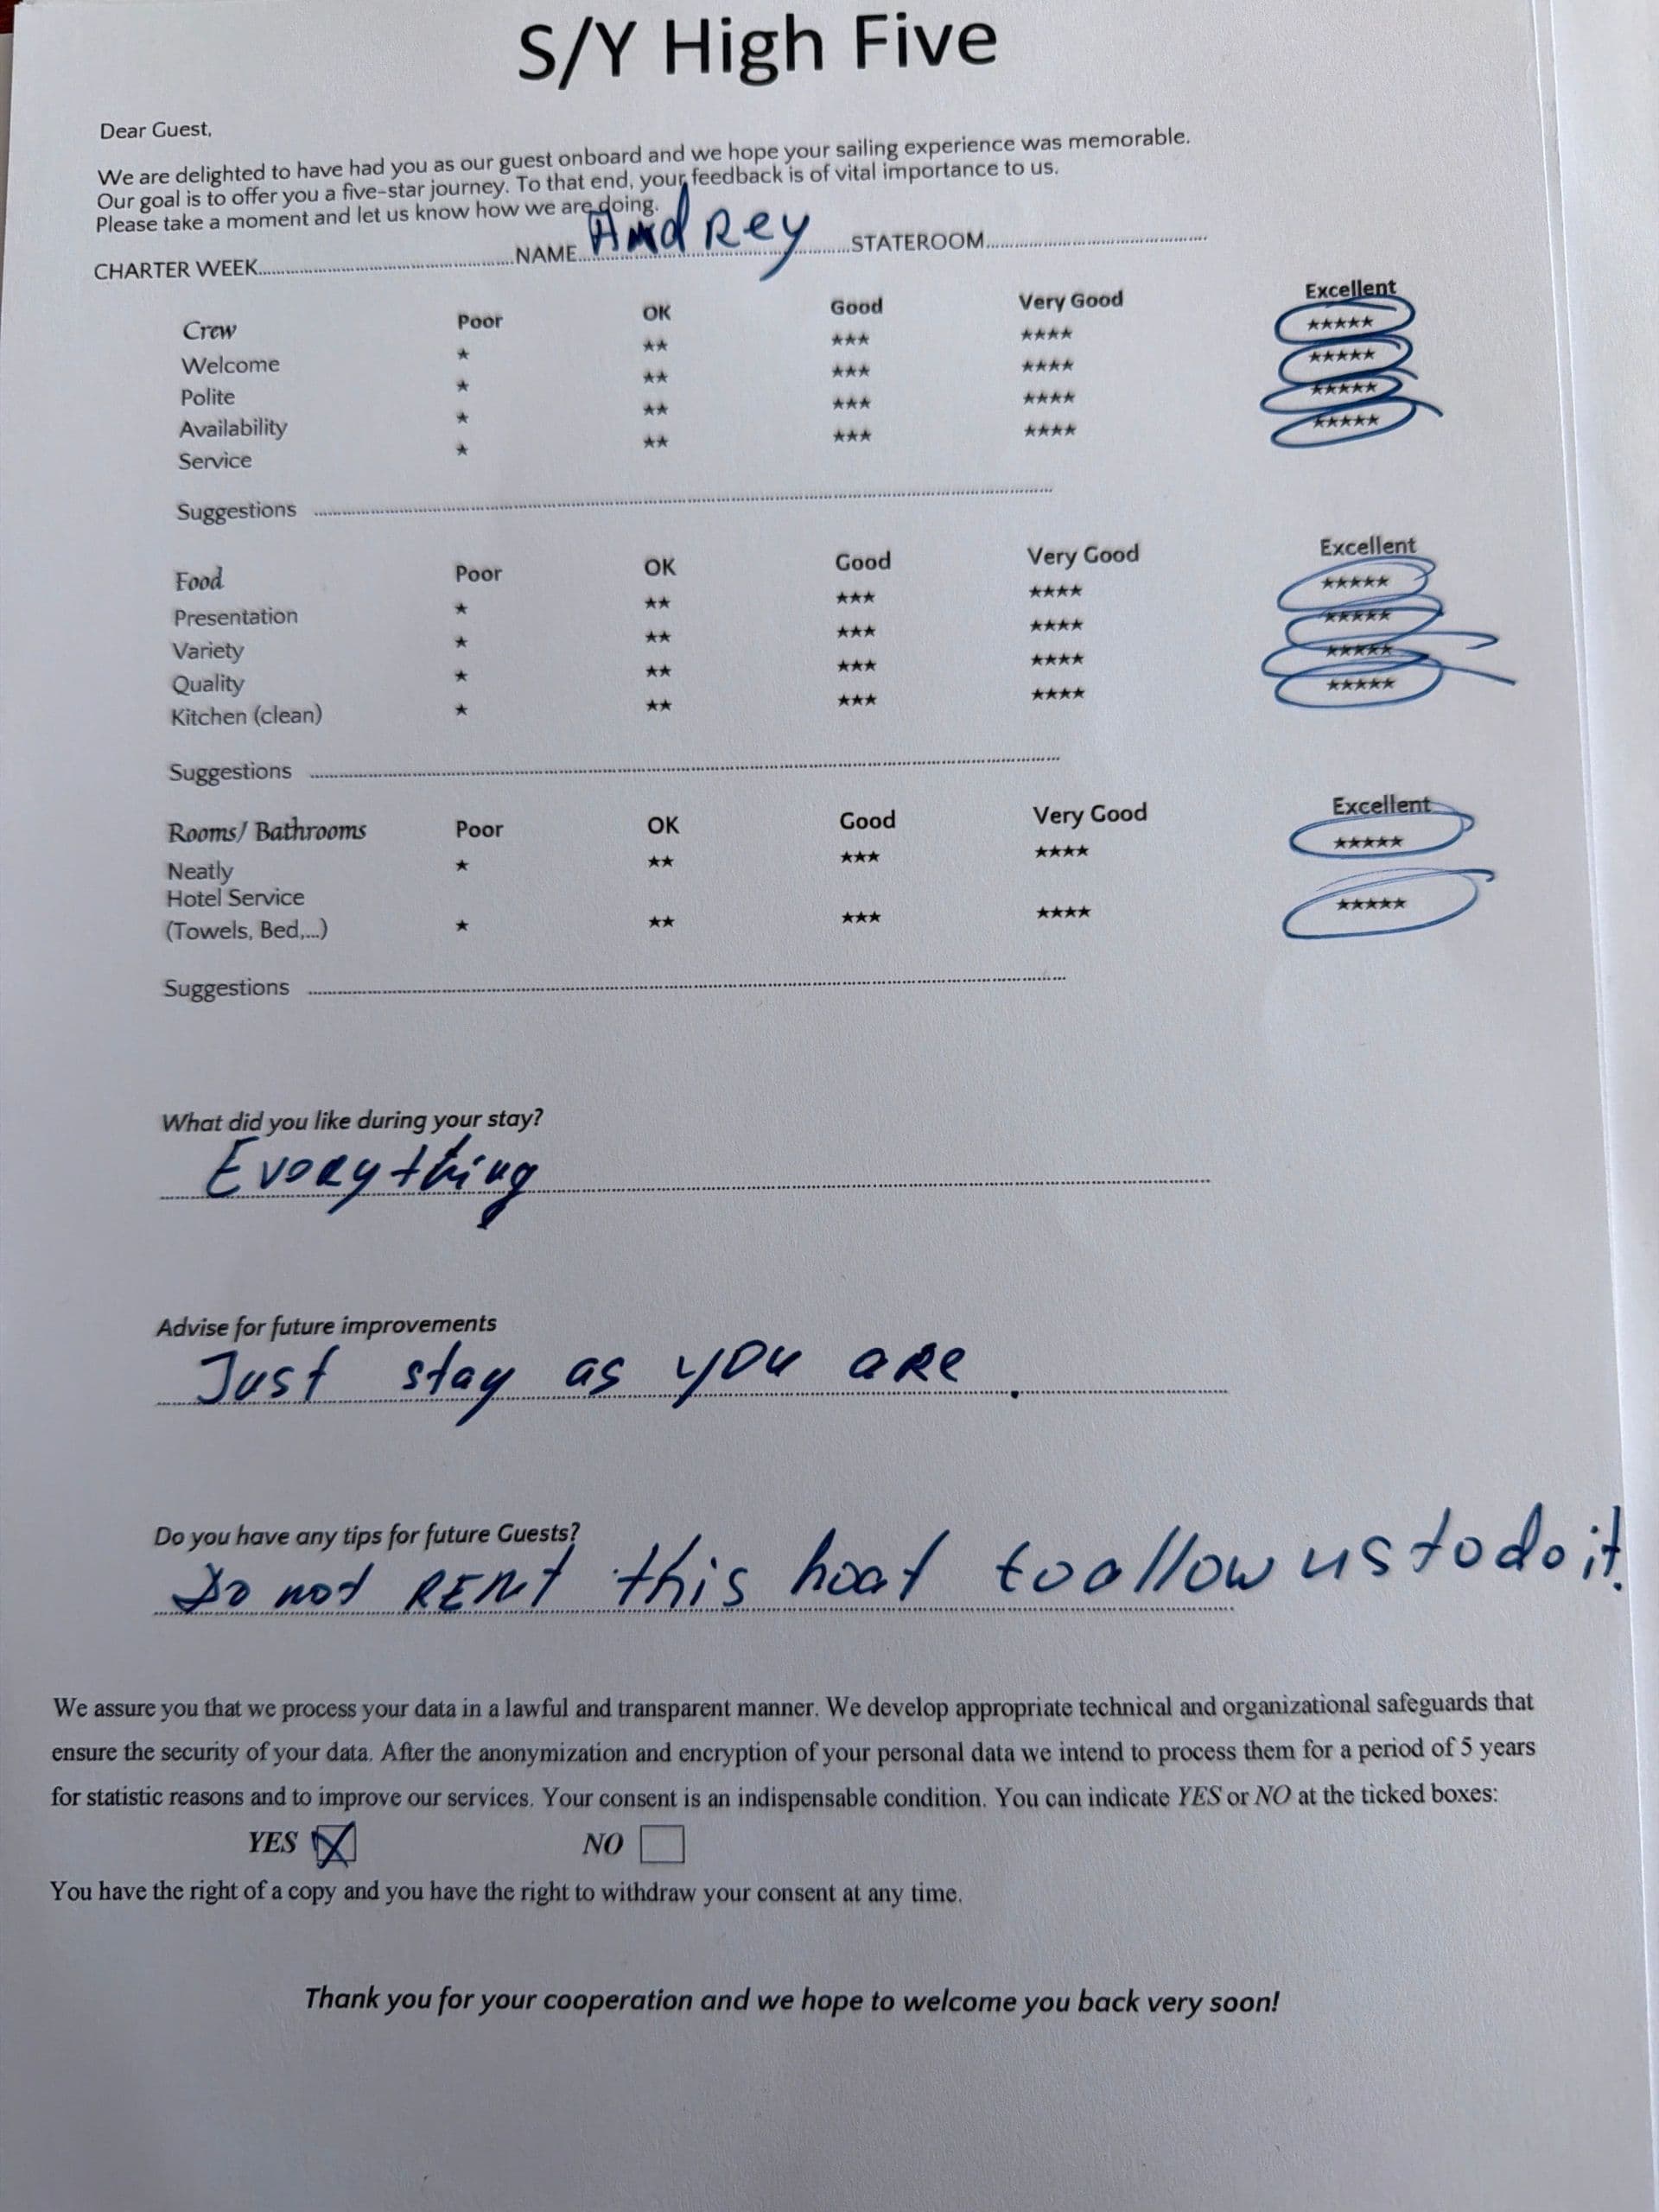 S/Y High Five
Dear Guest,
We are delighted to have had you as our guest onboard and we hope your sailing experience was memorable.
Our goal is to offer you a five-star journey. To that end, your feedback is of vital importance to us.
Please take a moment and let us know how we are doing.
CHARTER WEEK..........NAME..Andrey..........STATEROOM..........
Crew Poor OK Good Very Good Excellent
Welcome ★ ★★ ★★★ ★★★★ ★★★★★
Polite ★ ★★ ★★★ ★★★★ ★★★★★
Availability ★ ★★ ★★★ ★★★★ ★★★★★
Service ★ ★★ ★★★ ★★★★ ★★★★★
Suggestions ..........
Food Poor OK Good Very Good Excellent
Presentation ★ ★★ ★★★ ★★★★ ★★★★★
Variety ★ ★★ ★★★ ★★★★ ★★★★★
Quality ★ ★★ ★★★ ★★★★ ★★★★★
Kitchen (clean) ★ ★★ ★★★ ★★★★ ★★★★★
Suggestions ..........
Rooms/ Bathrooms Poor OK Good Very Good Excellent
Neatly ★ ★★ ★★★ ★★★★ ★★★★★
Hotel Service
(Towels, Bed,...) ★ ★★ ★★★ ★★★★ ★★★★★
Suggestions ..........
What did you like during your stay?
Everything
Advise for future improvements
Just stay as you are.
Do you have any tips for future Guests?
Do not RENT this boat to allow us to do it.
We assure you that we process your data in a lawful and transparent manner. We develop appropriate technical and organizational safeguards that
ensure the security of your data. After the anonymization and encryption of your personal data we intend to process them for a period of 5 years
for statistic reasons and to improve our services. Your consent is an indispensable condition. You can indicate YES or NO at the ticked boxes:
YES ☒ NO ☐
You have the right of a copy and you have the right to withdraw your consent at any time.
Thank you for your cooperation and we hope to welcome you back very soon!